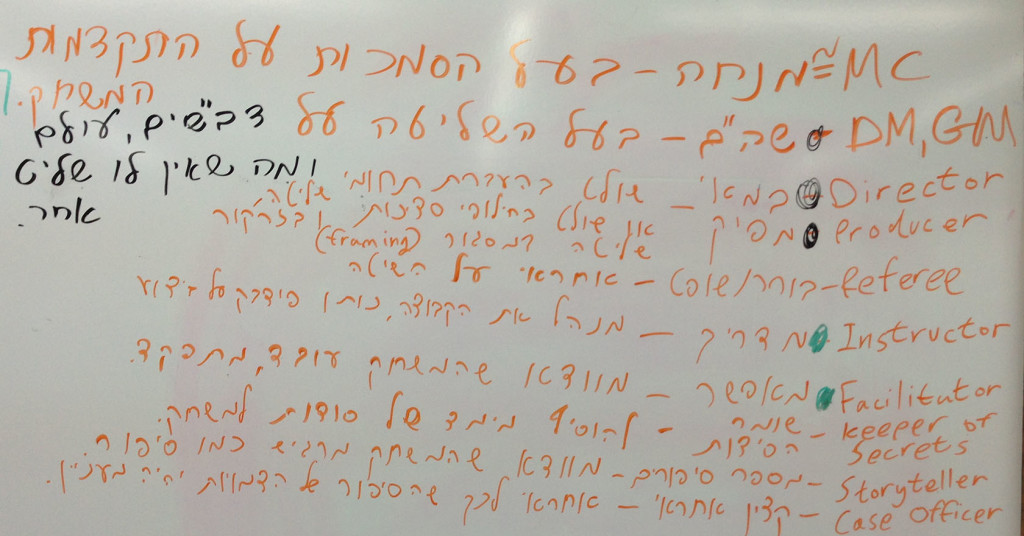 MC ≈ מנחה - בעל הסמכות על התקדמות
המשחק.
DM, GM שב"ם - בעל השליטה על דב"שים, עולם
ומה שאין לו שליט
אחר.
Director במאי - שולט בהעברת תחומי שליטה,
Producer מפיק או שולט בחילופי סצינות ובזרקור
שליטה במסגור (framing)
Referee - בורר/שופט - אחראי על השיטה
Instructor מדריך - מנהל את הקבוצה, נותן פידבק על ביצוע
Facilitator מאפשר - מוודא שהמשחק עובד, מתפקד.
keeper of - שומר - להוסיף מימד של סודות למשחק.
Secrets הסודות
Storyteller - מספר סיפורים - מוודא שהמשחק מרגיש כמו סיפור.
Case Officer - קצין אחראי - אחראי לכך שהסיפור של הדמויות יהיה מעניין.